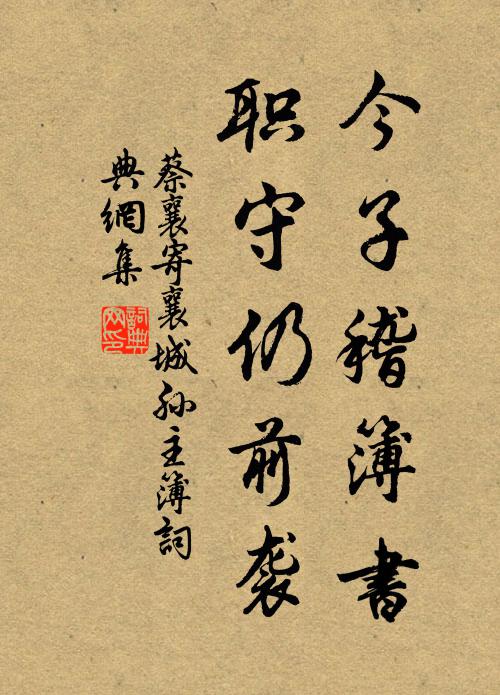 今子稽簿書
职守仍前袭
蔡襄寄襄城孙主簿詞
典網集
詞典
网印